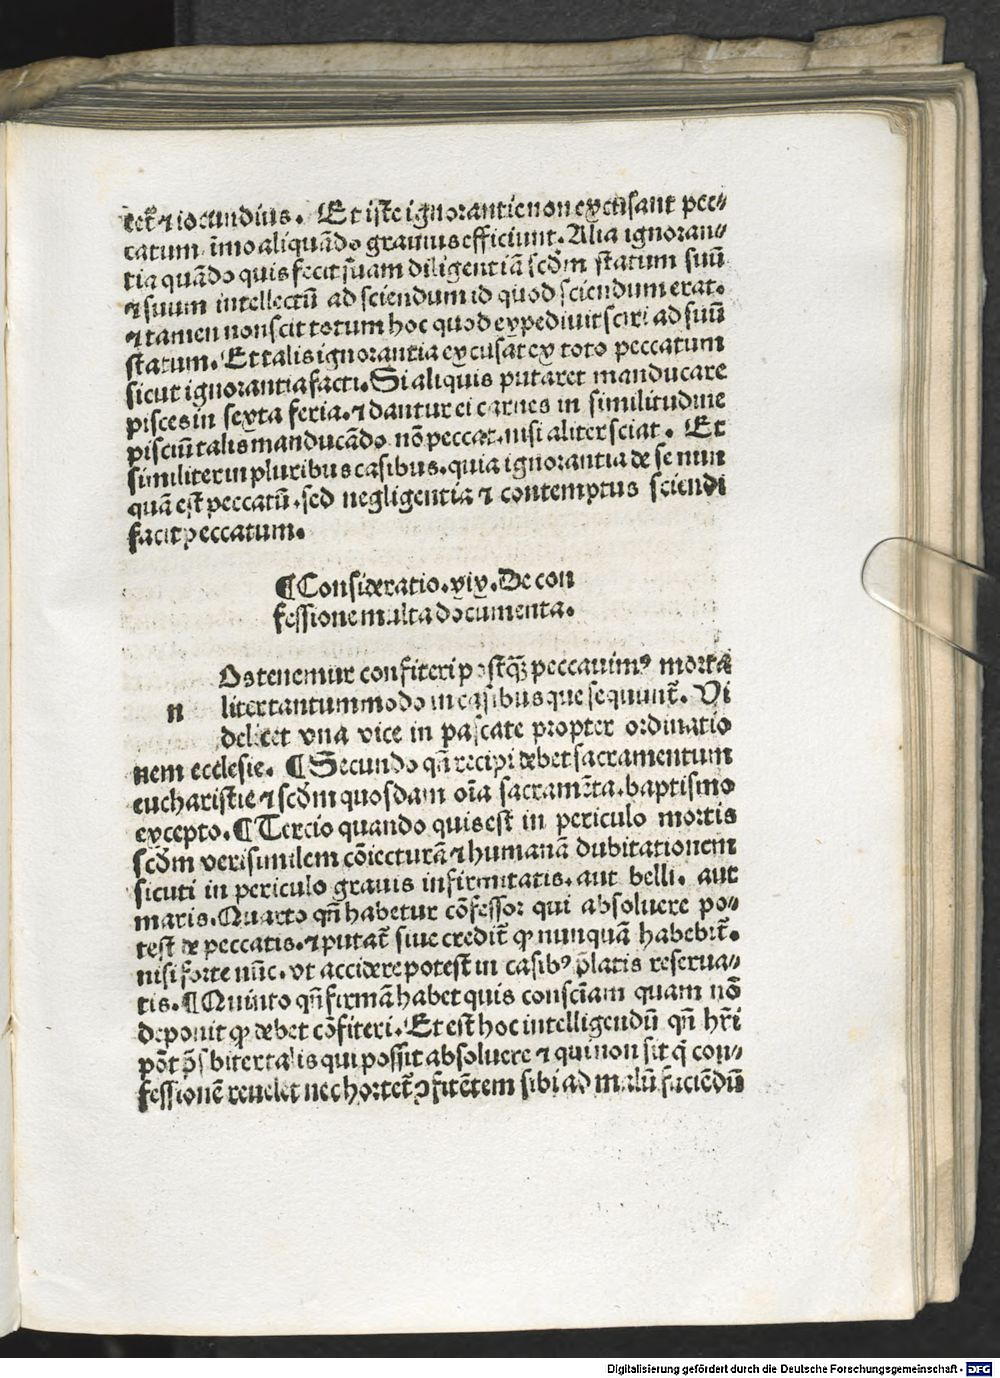 ret᷑ ⁊ iocundius. Et iste ignorantie non excusant pec⸗
catum īmo aliquādo grauius efficiunt. Alia ignoran⸗
tia quādo quis fecit suam diligentiā scđm statum suū
⁊ suum intellectū ad sciendum id quod sciendum erat.
⁊ tamen non scit totum hoc quod expediuit sciri ad suū
statum. Et talis ignorantia excusat ex toto peccatum
sicut ignorantia facti. Si aliquis putaret manducare
pisces in sexta feria. ⁊ dantur ei carnes in similitudine
pisciū talis manducādo nō peccat. nisi aliter sciat. Et
similiter in pluribus casibus. quia ignorantia de se nun
quā est peccatū. sed negligentia ⁊ contemptus sciendi
facit peccatum.
¶ Consideratio. xix. De con
fessione multa documenta.
n
Os tenemur confiteri postq̄ʒ peccauimꝰ morta
liter tantummodo in casibus que sequunt᷑. Vi
delicet vna vice in pascate propter ordinatio
nem ecclesie. ¶ Secundo qn̄ recipi debet sacramentum
eucharistie ⁊ scđm quosdam oīa sacramēta. baptismo
excepto. ¶ Tercio quando quis est in periculo mortis
scđm verisimilem cōiecturā ⁊ humanā dubitationem
sicuti in periculo grauis infirmitatis. aut belli. aut
maris. Quarto qn̄ habetur cōfessor qui absoluere po⸗
test de peccatis. ⁊ putat᷑ siue credit᷑ ꝙ nunquā habebit᷑.
nisi forte nūc. vt accidere potest in casibꝰ p̄latis reserua⸗
tis. ¶ Quinto qn̄ firmā habet quis consciam̄ quam nō
deponit ꝙ debet cōfiteri. Et est hoc intelligendū qn̄ hr̄i
pōt p̄sbiter talis qui possit absoluere ⁊ qui non sit q̄ con⸗
fessionē reuelet nec hortet᷑ ꝯfitētem sibi ad malū faciēdū
Digitalisierung gefördert durch die Deutsche Forschungsgemeinschaft - DFG